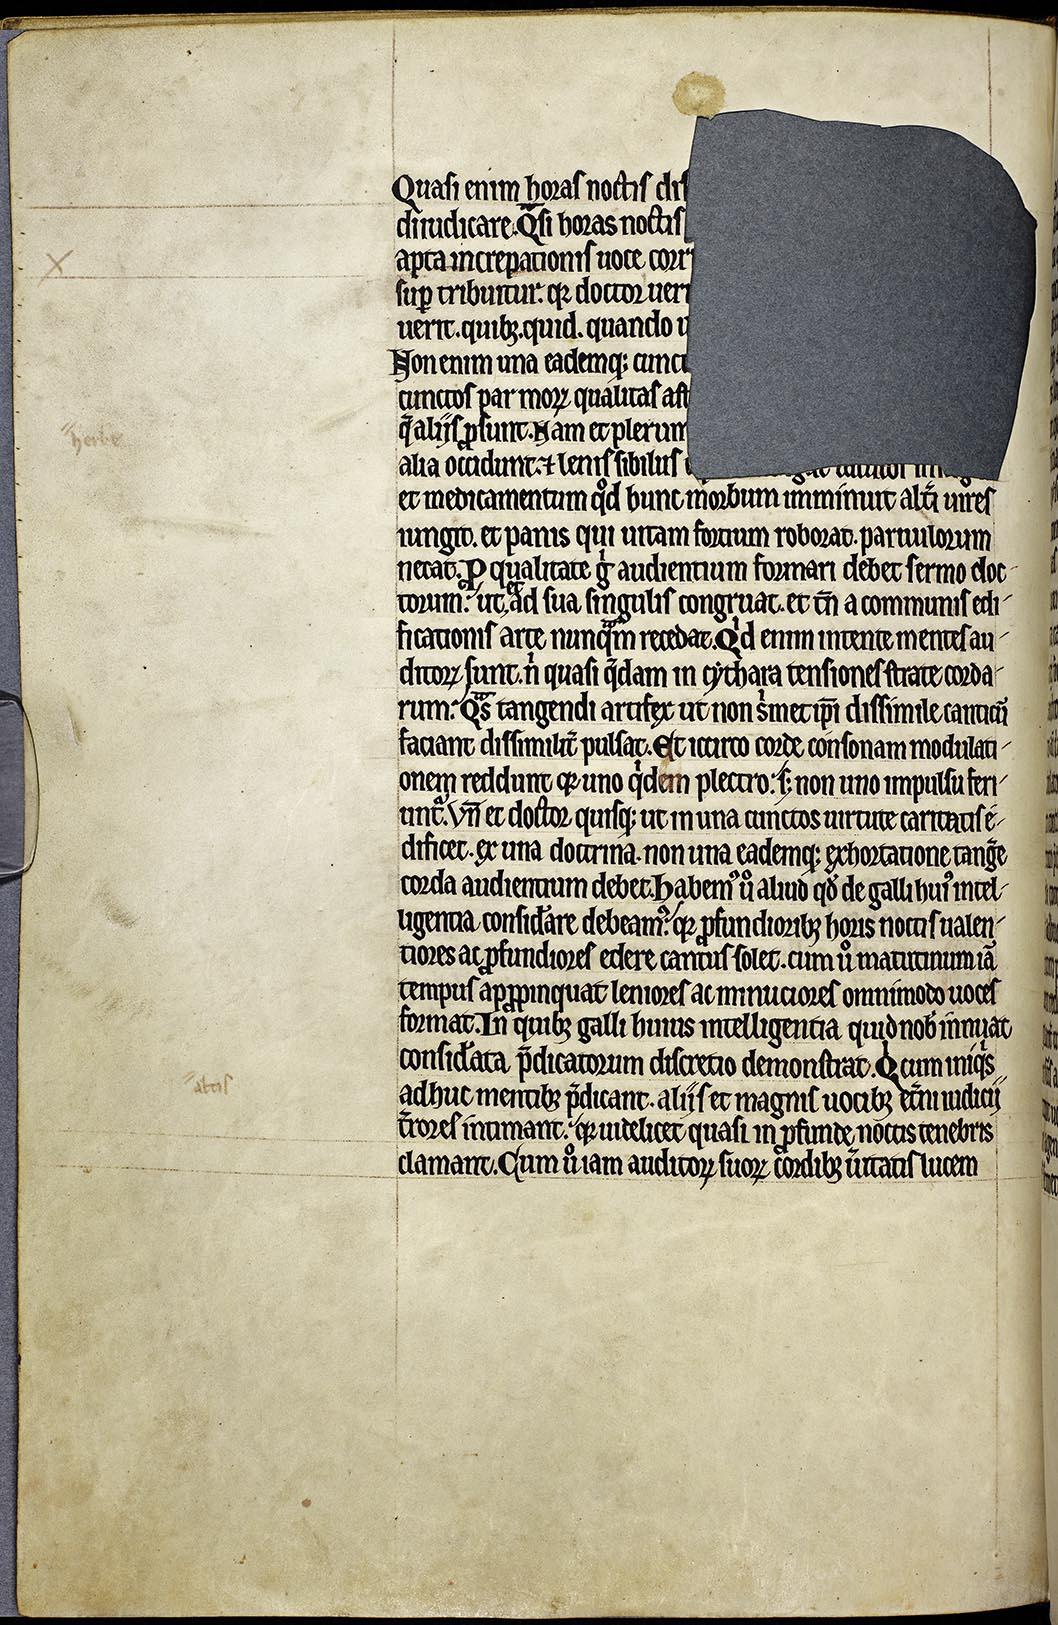 Quasi enim horas noctis dis
diiudicare. Qͣsi horas noctis
apta increpationis uoce corr
suꝑ tribuitur. qꝛ doctor
uerit. quibꝫ. quid. quando
Non enim una eademqꝫ cunct
cunctos par moꝝ qualitas
q̄ alijs ꝓsunt. Nam et plerum
alia occidunt. ⁊ lenis sibilus
et medicamentum qͦd hunc morbum imminuit altͥ uires
iungit. et panis qui uitam fortium roborat. paruulorum
necat. P̱ qualitate gͥ audientium formari debet sermo doc
torum. ut et ad sua singulis congruat. et tn̄ a communis edi
ficationis arte nunqͣm recedat. Qͥd enim intente mentes au
ditoꝝ sunt. nͥ quasi q̄dam in cythara tensiones strate corda
rum. Qͣs tangendi artifex ut non sͥmet ip̄i dissimile canticū
faciant dissimilit̄ pulsat. Et iccirco corde consonam modulati
onem reddunt qꝛ uno qͥdem plectro. sꝫ non uno impulsu feri
unt᷑. Vn̄ et doctor quisqꝫ ut in una cunctos uirtute caritatis e
dificet. ex una doctrina. non una eademqꝫ exhortatione tanḡe
corda audientium debet. Habemꝰ uͦ aliud qͦd de galli huiꝰ intel
ligentia consid̄are debeamꝰ. qꝛ ꝓfundioribꝫ horis noctis ualen
tiores ac ꝓfundiores edere cantus solet. cum uͦ matutinum iā
tempus apꝓpinquat leniores ac minuciores omnimodo uoces
format. In quibꝫ galli huius intelligentia quid nob̄ innuat
consid̄ata p̄dicatorum discretio demonstrat. Qͥ cum iniqͥs
adhuc mentibꝫ p̄dicant. alijs et magnis uocibꝫ et̄ni iudicij
t̄rores intimant. qꝛ uidelicet quasi in ꝓfunde noctis tenebris
clamant. Cum uͦ iam auditoꝝ suoꝝ cordibꝫ ūitatis lucem
herbe
altis